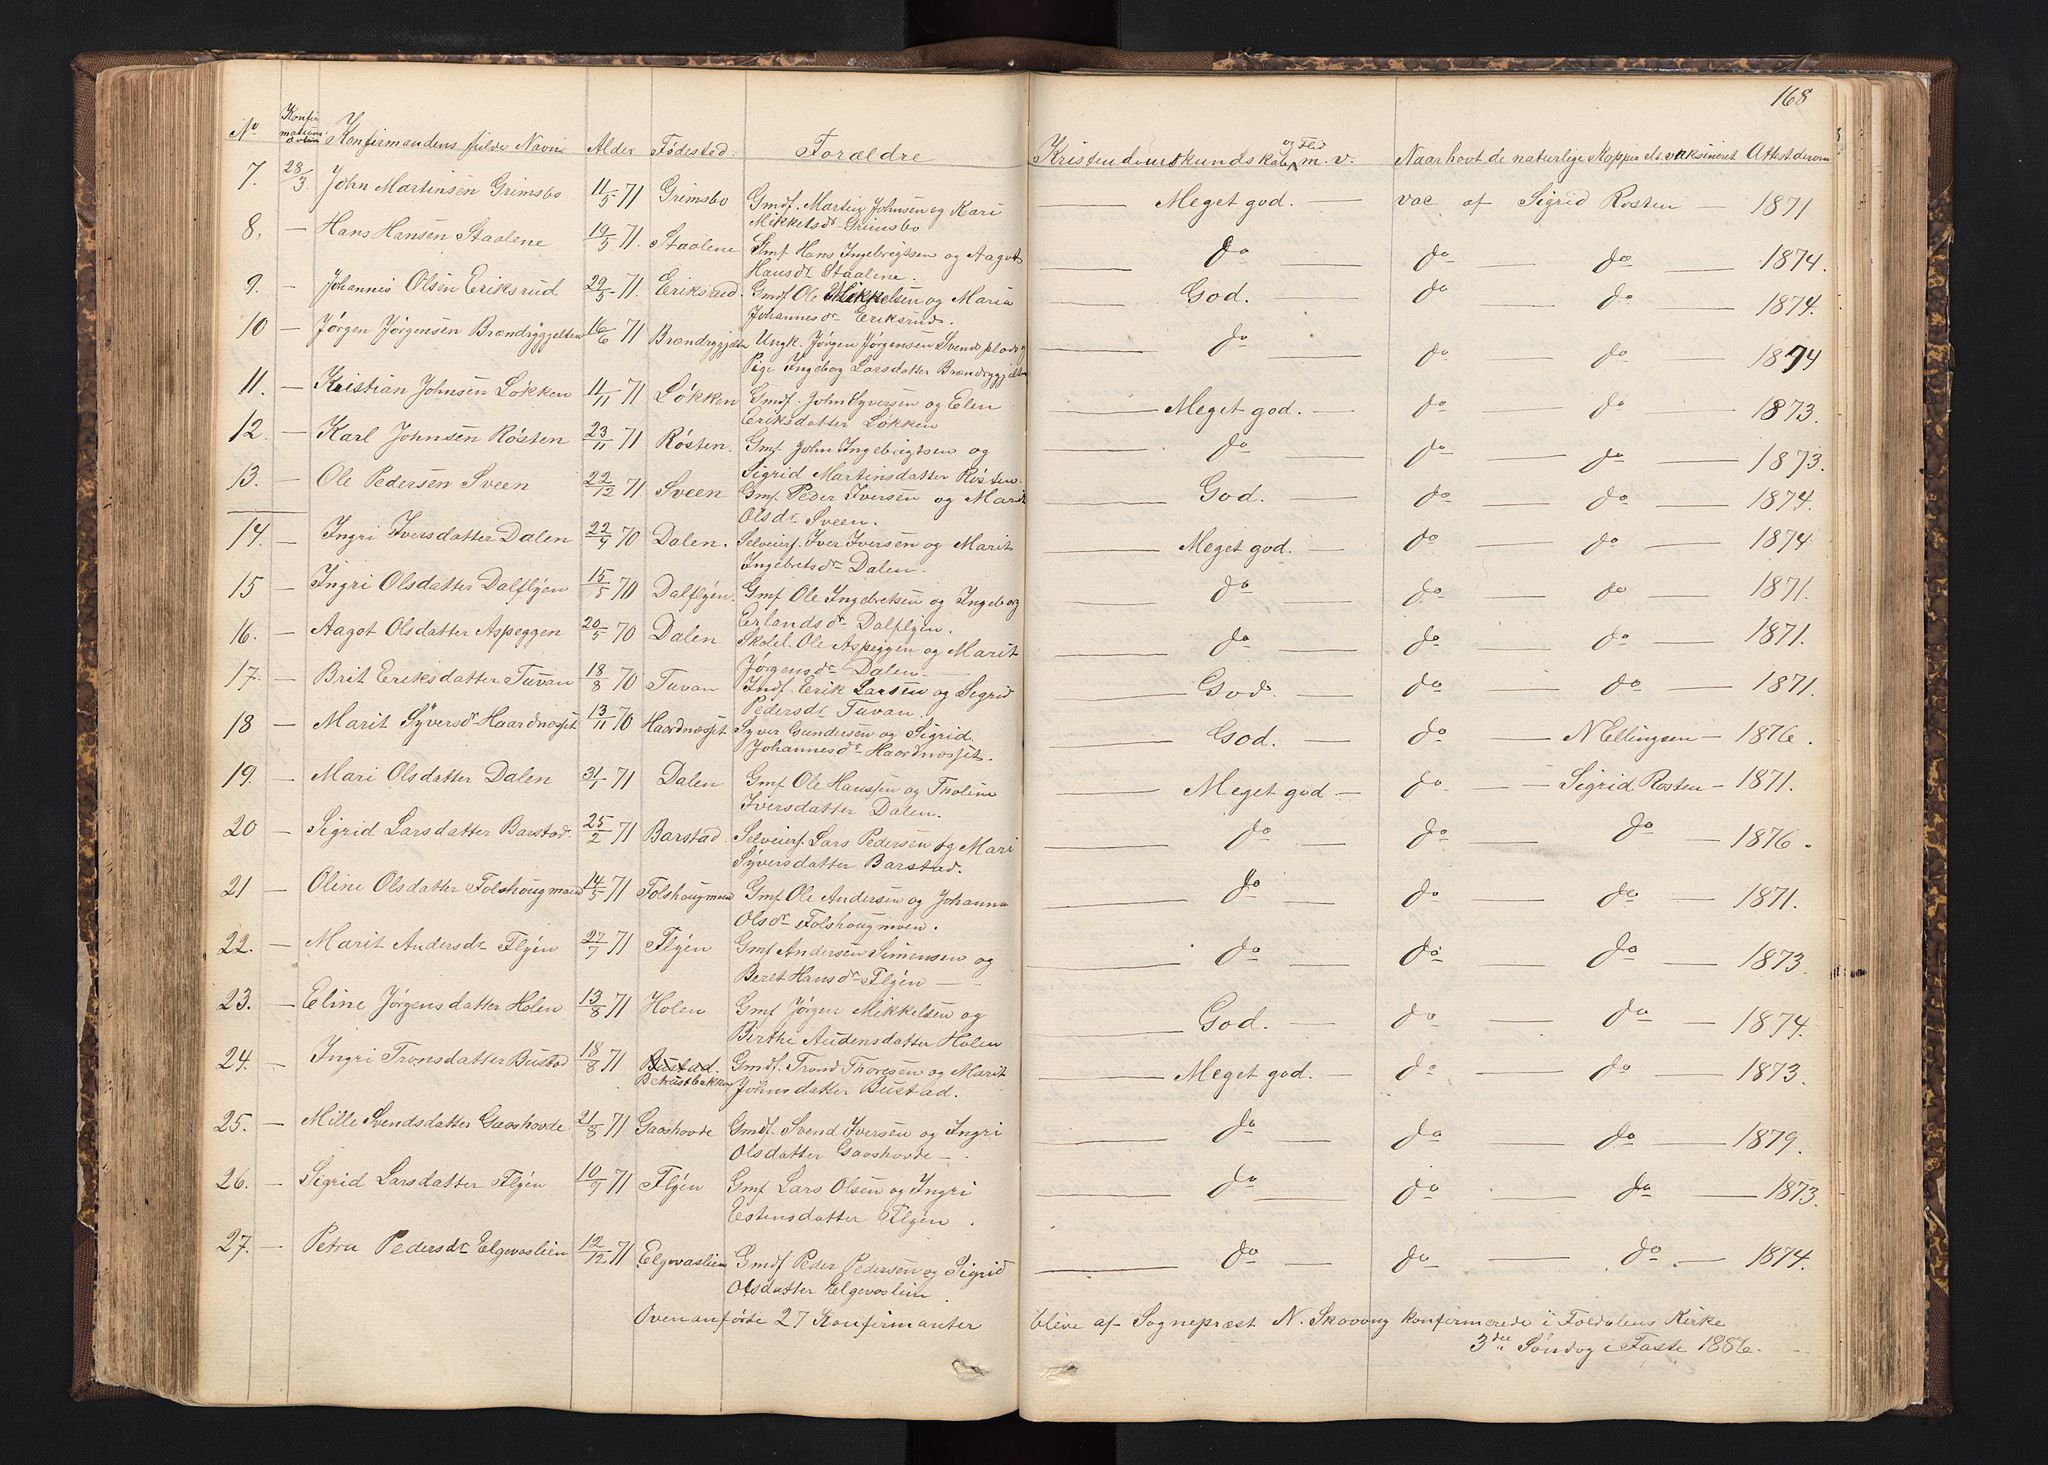 168
No Konfirmations-datum Konfirmandens fulde Navn Alder Fødested. Forældre Kristendomskundskab og Flid m. v. Naar havt de naturlige Kopper el. vaksineret Attest derom
7. 28/3. John Martinsen Grimsbo 11/5 71 Grimsbo Gmdf. Martin Johnsen og Kari — Meget god. — vac af Sigrid Rosten — 1871
Mikkelsdr Grimsbo
8. — Hans Hansen Staalene 19/5 71. Staalene Gmf Hans Ingebrigtsen og Aagot — do do — do — 1874.
Hansdr Staalene.
9. — Johannes Olsen Eriksrud 29/5 71. Eriksrud. Gmdf Ole Mikkelsen og Maria — God. — do — do — 1874.
Johannesdr Eriksrud.
10 — Jørgen Jørgensen Brændryggjelten 16/6 71 Brændryggjelten Ungk. Jørgen Jørgensen Svendsplads og — do do — do — 1874
Pige Ingebog Larsdatter Brændryggjelten
11. — Kristian Johnsen Løkken 11/11 71 Løkken Gmdf. John Syversen og Elen — Meget god. — do — do — 1873.
Eriksdatter Løkken
12. — Karl Johnsen Røsten 23/11 71 Røsten. Gmf. John Ingebrigtsen og — do do — do — 1873.
Sigrid Martinsdatter Røsten.
13. — Ole Pedersen Sveen 22/12 71 Sveen Gmf. Peder Iversen og Marit — God. — do — do — 1874.
Olsdr Sveen.
14. — Ingri Iversdatter Dalen 22/4 70 Dalen. Selveierf. Iver Iversen og Marit — Meget god. — do — do — 1874
Ingebretsdr Dalen.
15 — Ingri Olsdatter Dalflyen 15/5 70 Dalflyen. Gmf Ole Ingebretsen og Ingeborg — do do — do — 1871.
Erlandsdr Dalflyen.
16. — Aagot Olsdatter Aspeggen 20/5 70 Dalen Skolel. Ole Aspeggen og Marit — do do — do — 1871.
Jørgensdr Dalen.
17. — Brit Eriksdatter Tuvan 18/8 70 Tuvan Indf. Erik Larsen og Sigrid — God. do — do — 1871.
Pedersdr Tuvan.
18 — Marit Syversdr Haardnæsset 13/11 70 Haardnæsset Syver Gundersen og Sigrid — God. — do — N Ellingsen — 1876.
Johannesdr Haardnæsset.
19. — Mari Olsdatter Dalen 31/1 71 Dalen Gmf Ole Hanssen og Tholine — Meget god — do — Sigrid Rosten — 1871.
Iversdatter Dalen.
20 — Sigrid Larsdatter Barstad. 25/2 71 Barstad. Selveierf. Lars Pedersen og Mari — do do — do — 1876.
Syversdatter Barstad.
21 — Oline Olsdatter Folshougmoen 14/5 71 Folshougmoen Gmf Ole Andersen og Johanna — do do — do — 1871.
Olsdr Folshougmoen.
22. — Marit Andersdr Flyen 27/7 71 Flyen Gmf Andersen Simensen og — do do — do — 1873.
Beret Hansdr Flyen —
23. — Eline Jørgensdatter Holen 13/8 71 Holen Gmf Jørgen Mikkelsen og — God. — do — do — 1874.
Birthe Audensdatter Holen
24. — Ingri Tronsdatter Bustad 18/8 71 Bustad. Gmdf. Trond Thoresen og Marit — Meget god. — do — do — 1873.
Johnsdatter Bustad.
25. — Mille Svendsdatter Gaashovde 21/8 71 Gaashovde Gmdf. Svend Iversen og Ingri — do do — do — 1879.
Olsdatter Gaashovde —
26. — Sigrid Larsdatter Flyen 10/9 71 Flyen Gmf Lars Olsen og Ingri — do — do — do — 1873.
Estensdatter Flyen.
27. — Petra Pedersdr Elgevaslien 12/12 71 Elgevaslien Gmdf Peder Pedersen og Sigrid — do do — do — 1874.
Olsdatter Elgevaslien.
Ovenanførte 27 Konfirmanter bleve af Sognepræst N. Skovong konfirmerede i Foldalens Kirke
3die Søndag i Faste 1886.